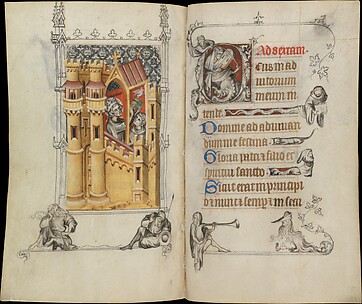 Ad tertiam.
Deus in ad
iutorium
meum in
tende.
Domine ad adiuvan
dum me festina.
Gloria patri et filio et
spiritui sancto.
Sicut erat in principi
o et nunc et semper et in secu